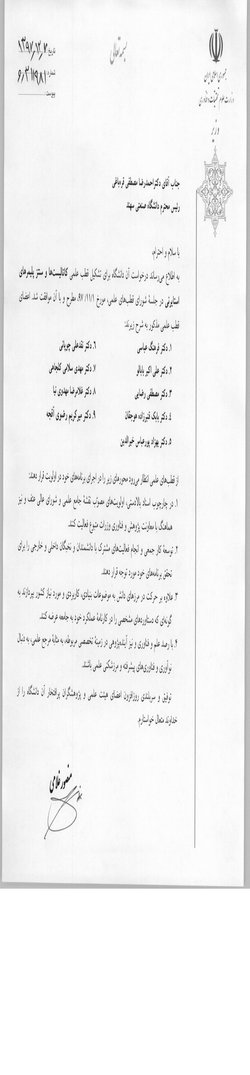 بسمه تعالی
جمهوری اسلامی ایران
وزارت علوم، تحقیقات و فناوری
وزیر
تاریخ: ۱۳۹۷/۱۲/۷
شماره:
پیوست:
جناب آقای دکتر احمدرضا مصطفی قره‌باغی
رئیس محترم دانشگاه صنعتی سهند
با سلام و احترام،
به اطلاع می‌رساند درخواست آن دانشگاه برای تشکیل قطب علمی کاتالیست‌ها و سنتز پلیمرهای
استایرنی در جلسهٔ شورای قطب‌های علمی، مورخ ۹۷/۱۱/۱ مطرح و با آن موافقت شد. اعضای
قطب علمی مذکور به شرح زیرند:
۱. دکتر فرهنگ عباسی
۲. دکتر علی اکبر بابالو
۳. دکتر مصطفی رضایی
۴. دکتر بابک قنبرزاده
۵. دکتر بهزاد پورعباس خیرالدین
۶. دکتر نقدعلی چوپانی
۷. دکتر مهدی سلامی کلجاهی
۸. دکتر غلامرضا مهدوی نیا
۹. دکتر میرکریم رضوی آقجه
از قطب‌های علمی انتظار می‌رود محورهای زیر را در اجرای برنامه‌های خود در اولویت قرار دهند:
۱. در چارچوب اسناد بالادستی، اولویت‌های مصوب نقشهٔ جامع علمی و شورای عالی عتف و نیز
هماهنگ با معاونت پژوهش و فناوری وزارت متبوع فعالیت کنند.
۲. توسعهٔ کار جمعی و انجام فعالیت‌های مشترک با دانشمندان و نخبگان داخلی و خارجی را برای
تحقق برنامه‌های خود مورد توجه قرار دهند.
۳. علاوه بر حرکت در مرزهای دانش به موضوعات بنیادی، کاربردی و مورد نیاز کشور بپردازند به
گونه‌ای که دستاوردهای مشخصی را در کارنامهٔ عملکرد خود به جامعه عرضه کنند.
۴. با رصد علم و فناوری و نیز آینده‌پژوهی در زمینهٔ تخصصی مربوطه، به مثابهٔ مرجع علمی، به دنبال
نوآوری و فناوری‌های پیشرفته و مرزشکنی علمی باشند.
توفیق و سربلندی روزافزون اعضای هیئت علمی و پژوهشگران پرافتخار آن دانشگاه را از
خداوند متعال خواستارم.
منصور غلامی